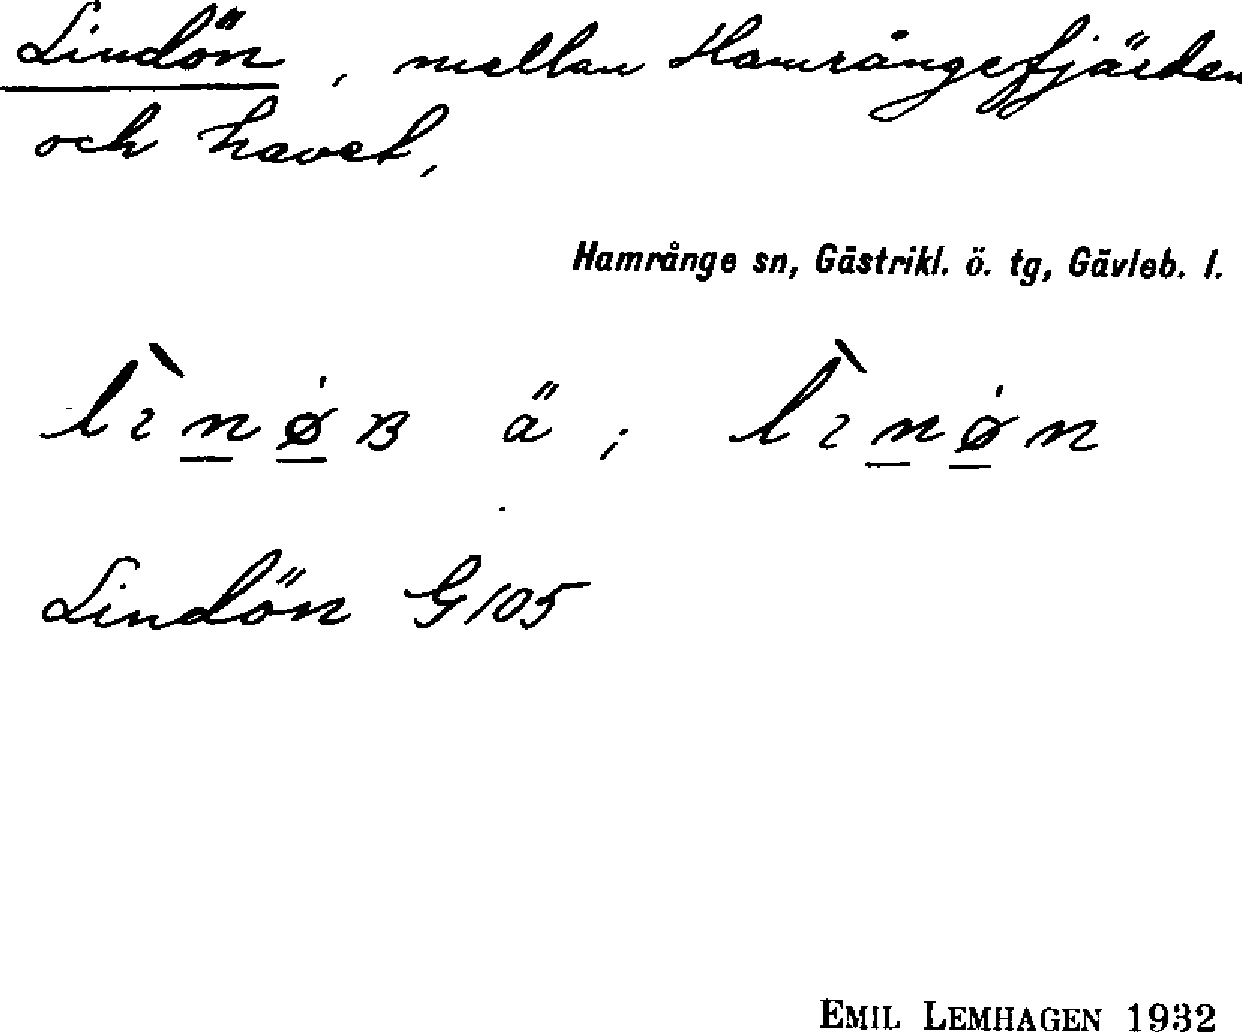 Lindön, mellan Hamrångefjärden
och havet,
Hamrånge sn, Gästrikl. ö. tg, Gävleb. l.
lìnøn ä; lìnøn
Lindön G105
EMIL LEMHAGEN 1932